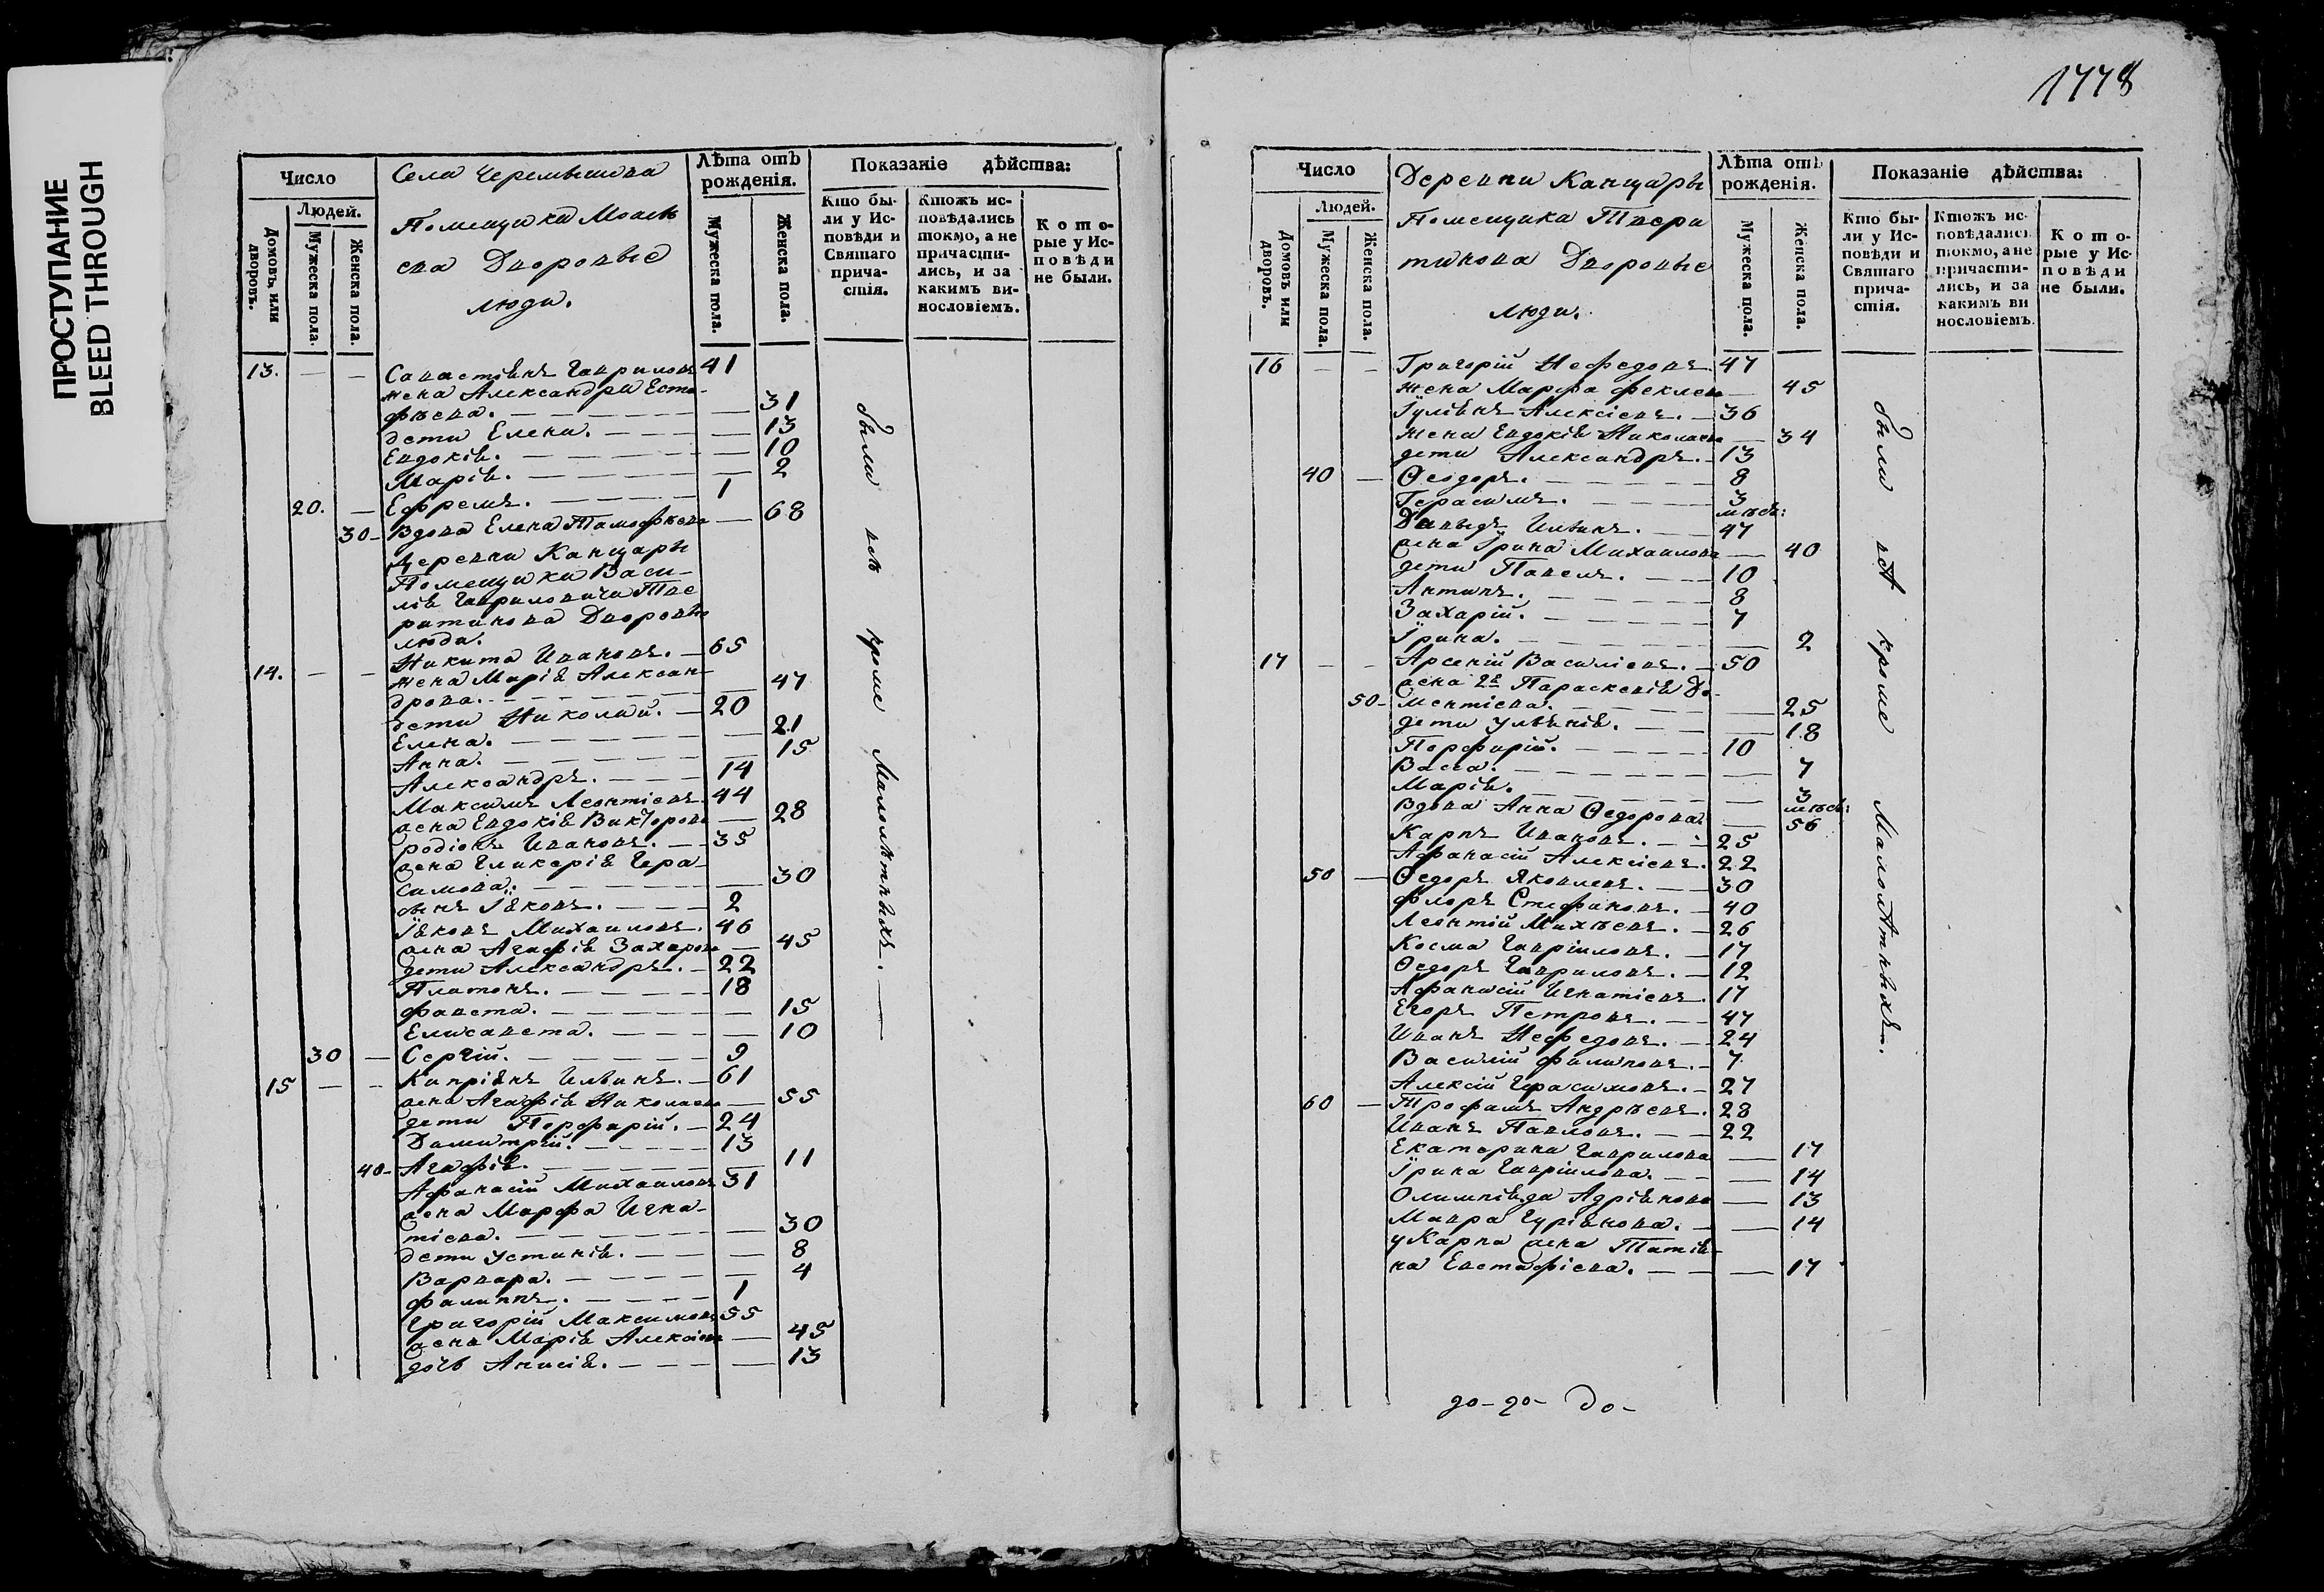 ПРОСТУПАНИЕ
BLEED THROUGH
1778
Число
Людей.
Домовъ, или дворовъ.
Мужеска пола.
Женска пола.
Села Черемышева
Помещика Моисе
ева Дворовые
люди.
Лѣта отъ рожденія.
Мужеска пола.
Женска пола.
Показаніе дѣйства:
Кто бы-
ли у Ис-
повѣди и
Святаго
прича-
стія.
Ктожъ ис-
повѣдались
токмо, а не
причасти-
лись, и за
какимъ ви-
нословіемъ.
Кото-
рые у Ис-
повѣди
не были.
13. — — Савастіянъ Гавриловъ 41
жена АлександраЕста-
фѣева. — 31
дети Елена. — 13
Евдокія. — 10
Марія. — 2
20. — Ефремъ. — 1
30 - Вдова Елена Тимофѣева — 68
Деревни Канцары
Помещика Васи-
лія Гавриловича Тве
ритинова Дворовые
люди.
14. — — Никита Ивановъ. — 65
жена Марія Алексан-
дрова. — 47
дети Николай. — 20
Елена. — 21
Анна. — 15
Александръ. — 14
Максимъ Леонтіевъ. 44
жена Евдокія Викторова — 28
Родіонъ Ивановъ. — 35
жена Гликерія Гера-
симова. — 30
сынъ Іяковъ. — 2
Іяковъ Михаиловъ. 46
жена Агафія Захарова — 45
дети Александръ. — 22
Платонъ. — 18
Фавста. — 15
Елисавета. — 10
30 — Сергій. — 9
15 — — Кипріянъ Ильинъ. — 61
жена Агафія Николаева — 55
дети Порфирій. — 24
Димитрій. — 13
40 - Агафія. — 11
Афанасій Михаиловъ 31
жена Марфа Игна-
тіева. — 30
дети Устинія. — 8
Варвара. — 4
Филиппъ. — 1
Григорій Максимовъ 55
жена Марія Алексіева — 45
дочь Анисія. — 13
были всѣ кроме малолѣтныхъ.
Число
Людей.
Домовъ или дворовъ.
Мужеска пола.
Женска пола.
Деревни Канцары
Помещика Твери
тинова Дворовые
люди.
Лѣта отъ рожденія.
Мужеска пола.
Женска пола.
Показаніе дѣйства:
Кто бы-
ли у Ис-
повѣди и
Святаго
прича-
стія.
Ктожъ ис-
повѣдались
токмо, а не
причасти-
лись, и за
какимъ ви
нословіемъ.
Кото-
рые у Ис-
повѣди
не были.
16 — — Григорій Нефедовъ 47
жена Марфа — 45
Іуліянъ Алексіевъ. — 36
жена Евдокія Николаева — 34
дети Александръ. — 13
40 — Ѳеодоръ. — 8
Герасимъ. — 3 мѣсе:
Давыдъ Ильинъ. — 47
жена Ірина Михаилова — 40
дети Павелъ. — 10
Антипъ. — 8
Захарій. — 7
Ірина. — 2
17 — — Арсеній Василіевъ. — 50
жена 2я Параскевія До-
50 - ментіева. — 25
дети Ульянія. — 18
Порфирій. — 10
Васса. — 7
Марія. — 3 мѣсе:
Вдова Анна Ѳедорова — 56
Карпъ Ивановъ. — 25
Афанасій Алексіевъ. 22
50 — Ѳедоръ Яковлевъ. — 30
Флоръ Стефановъ. — 40
Леонтій Михѣевъ. — 26
Косма Гавріиловъ. — 17
Ѳедоръ Гавриловъ. — 12
Афанасій Игнатіевъ. 17
Егоръ Петровъ. — 47
Иванъ Нефедовъ. — 24
Василій Филиповъ. — 7
Алексій Герасимовъ. — 27
60 — Трофимъ Андрѣевъ. 28
Иванъ Павловъ. — 22
Екатерина Гаврилова — 17
Ірина Гавріилова. — 14
Олимпіяда Адріянова — 13
Мавра Гуріянова. — 14
у Карпа жена Татія-
на Евстафіева. — 17
были всѣ кроме малолѣтныхъ.